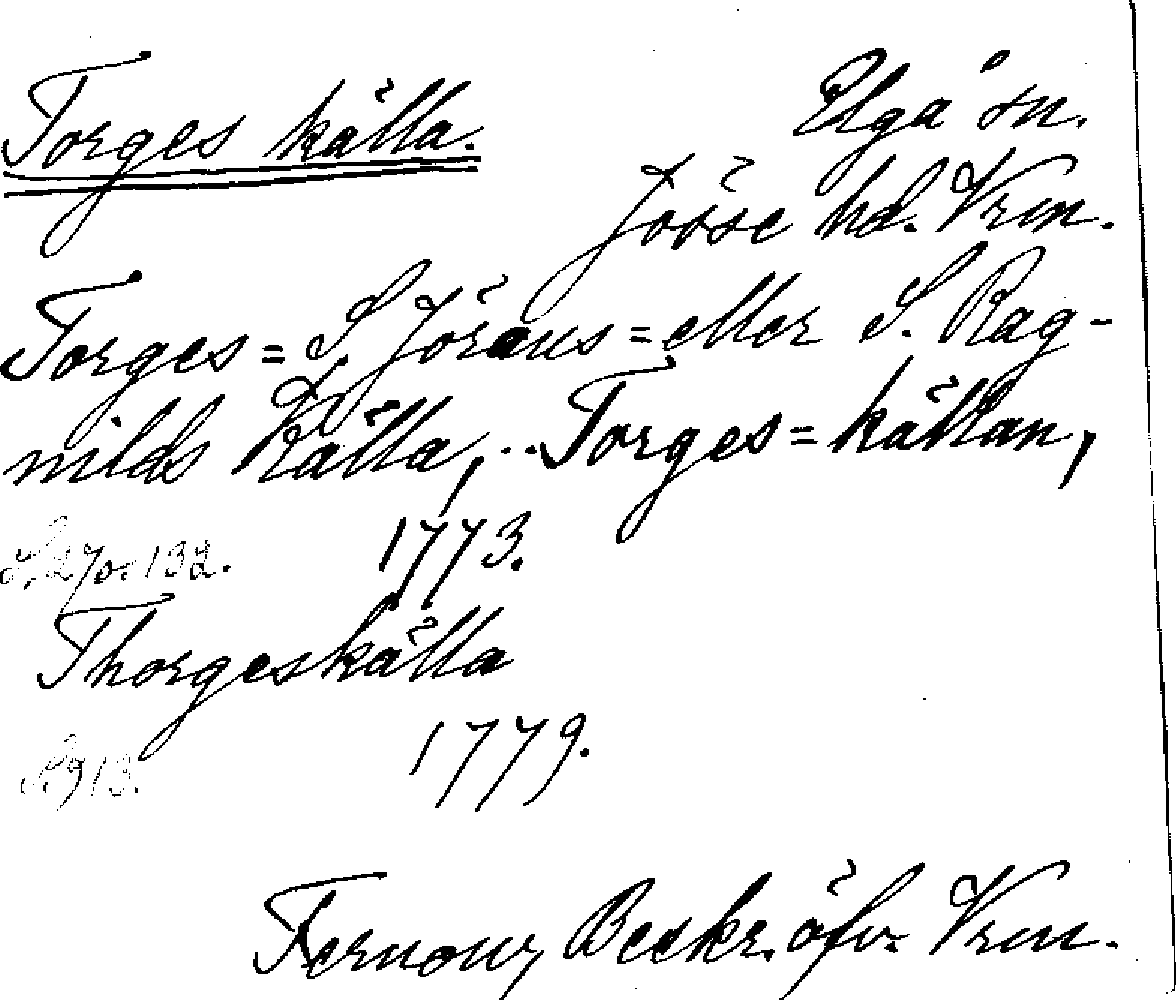 Torges källa. Elgå sn.
Jösse hd. Vrm.
Torges = S. Jörans = eller S. Rag-
nilds Källa, .. Torges = källan,
S. 27 o. 132. 1773.
Thorgeskälla
S. 913. 1779.
Fernow, Beskr. öfv. Vrm.